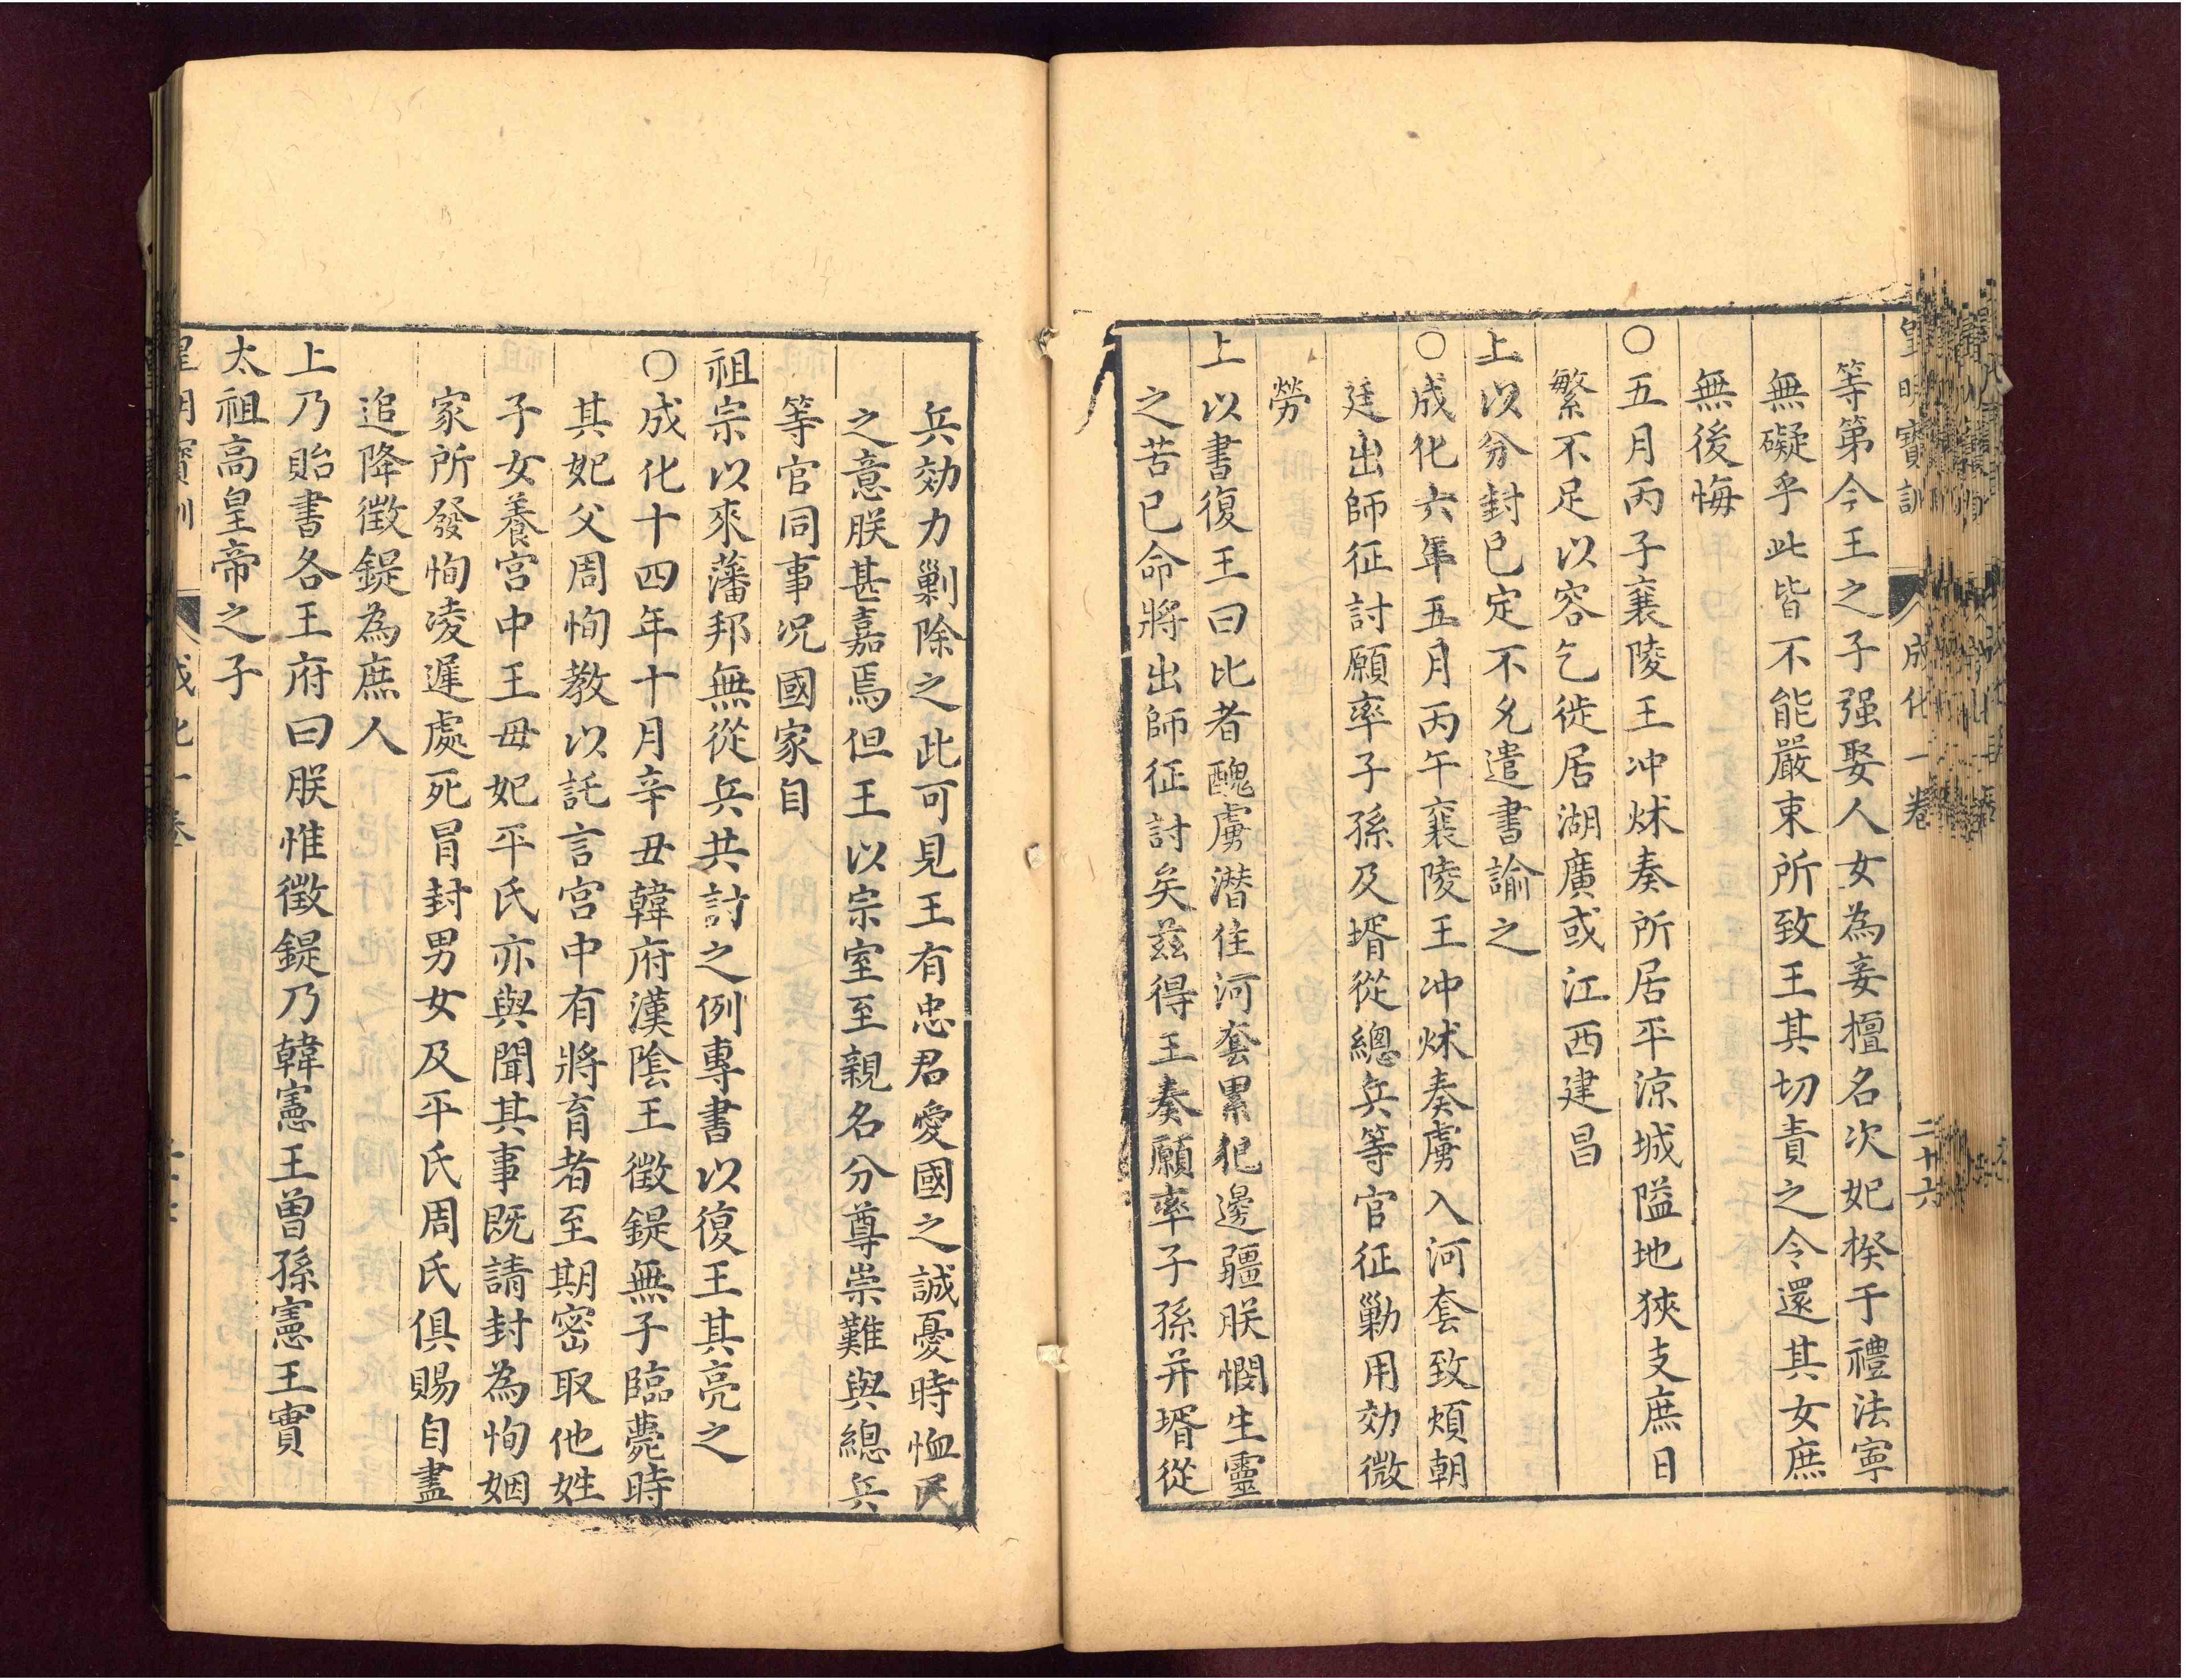 皇明寶訓 成化一卷 二十六
等第今王之子强娶人女為妾擅名次妃揆于禮法寜
無礙乎此皆不能嚴束所致王其切責之令還其女庶
無後悔
○五月丙子襄陵王冲炢奏所居平凉城隘地狹支庶日
繁不足以容乞徙居湖廣或江西建昌
上以分封已定不允遣書諭之
○成化六年五月丙午襄陵王冲炢奏虜入河套致煩朝
廷出師征討願率子孫及壻從總兵等官征勦用効微
勞
上以書復王曰比者醜虜潜住河套累犯邊疆朕憫生靈
之苦已命將出師征討矣兹得王奏願率子孫并壻從
兵効力剿除之此可見王有忠君愛國之誠憂時恤民
之意朕甚嘉焉但王以宗室至親名分尊崇難與總兵
等官同事况國家自
祖宗以來藩邦無從兵共討之例專書以復王其亮之
○成化十四年十月辛丑韓府漢陰王徵鍉無子臨薨時
其妃父周恂教以託言宫中有將育者至期密取他姓
子女養宫中王毋妃平氏亦與聞其事既請封為恂姻
家所發恂凌遲處死冐封男女及平氏周氏俱賜自盡
追降徵鍉為庶人
上乃貽書各王府曰朕惟徵鍉乃韓憲王曾孫憲王實
太祖高皇帝之子
皇明寶訓 成化一卷